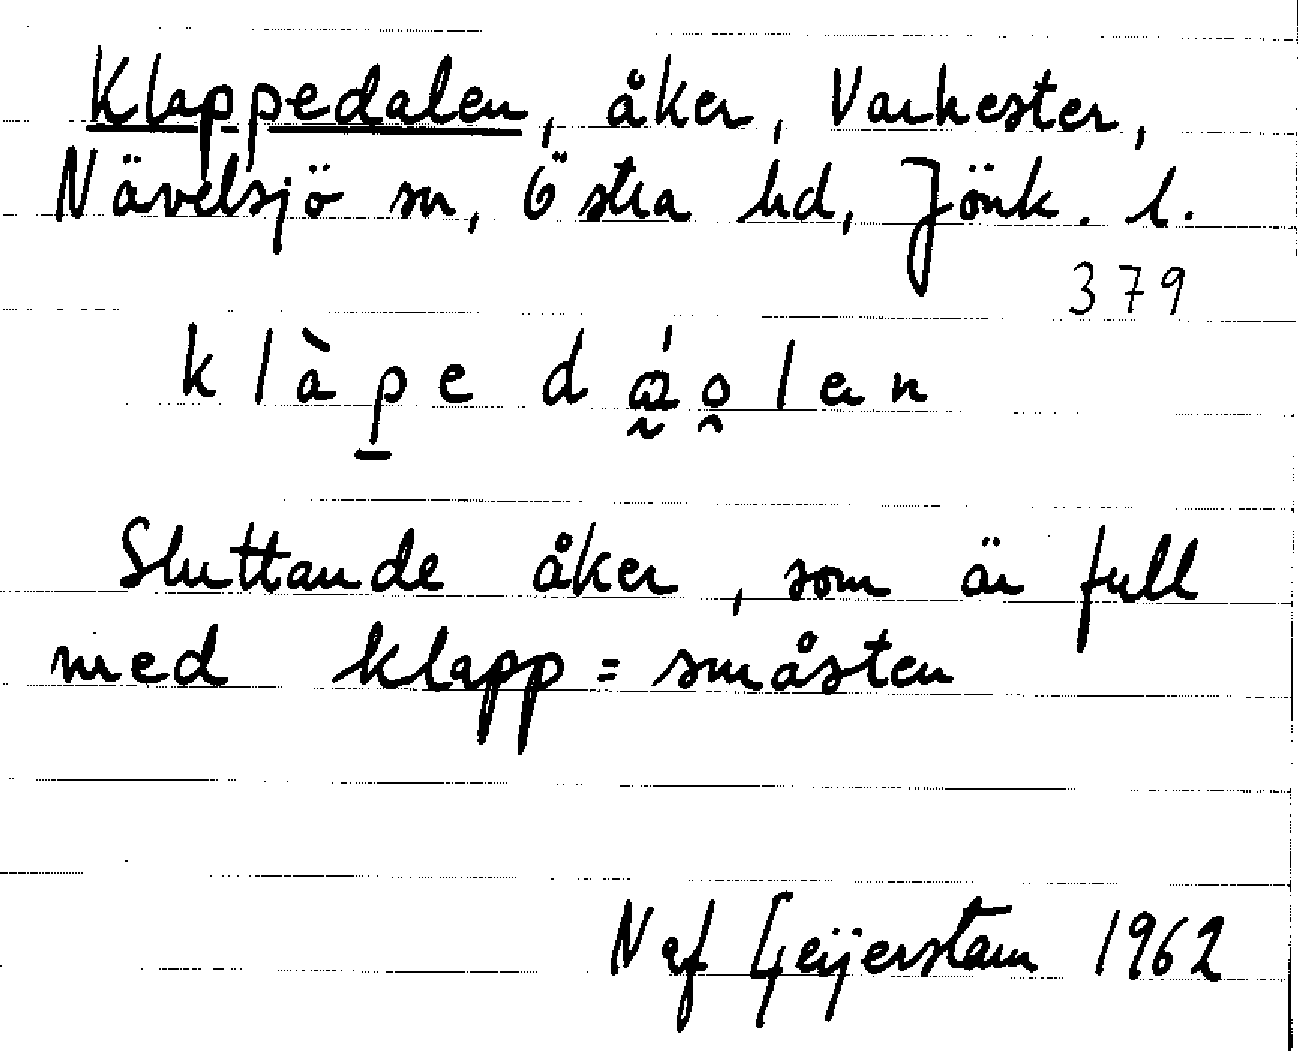 Klappedalen, åker, Varkester,
Nävelsjö sn, Östra hd, Jönk. l.
379
klàpe dá̰o̯len
Sluttande åker, som är full
med klapp = småsten
N af Geijerstam 1962